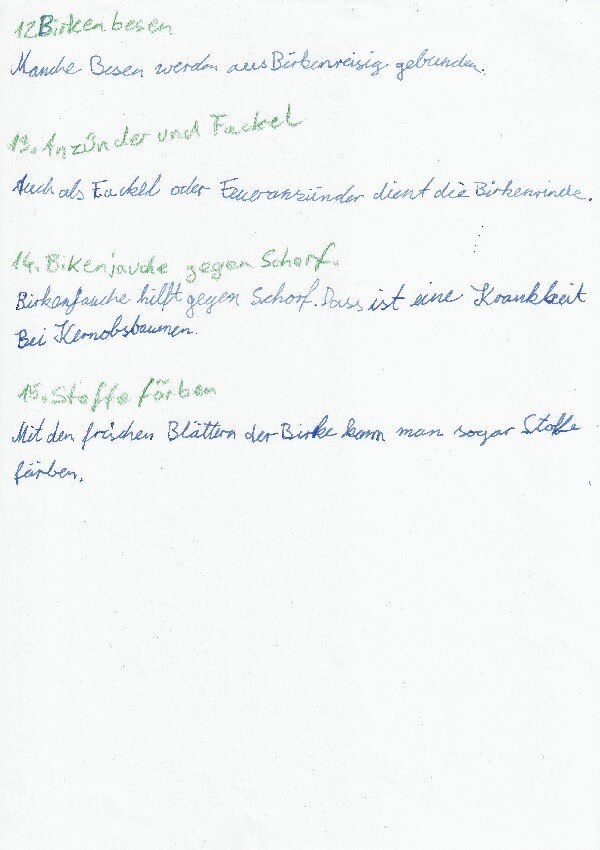 12 Birkenbesen
Manche Besen werden aus Birkenreisig gebunden.
13. Anzünder und Fackel
Auch als Fackel oder Feueranzünder dient die Birkenrinde.
14. Bikenjauche gegen Schorf.
Birkenjauche hilft gegen Schorf. Dass ist eine Krankheit
Bei Kernobsbaumen.
15. Stoffe färben
Mit den frischen Blättern der Birke kann man sogar Stoffe
färben.